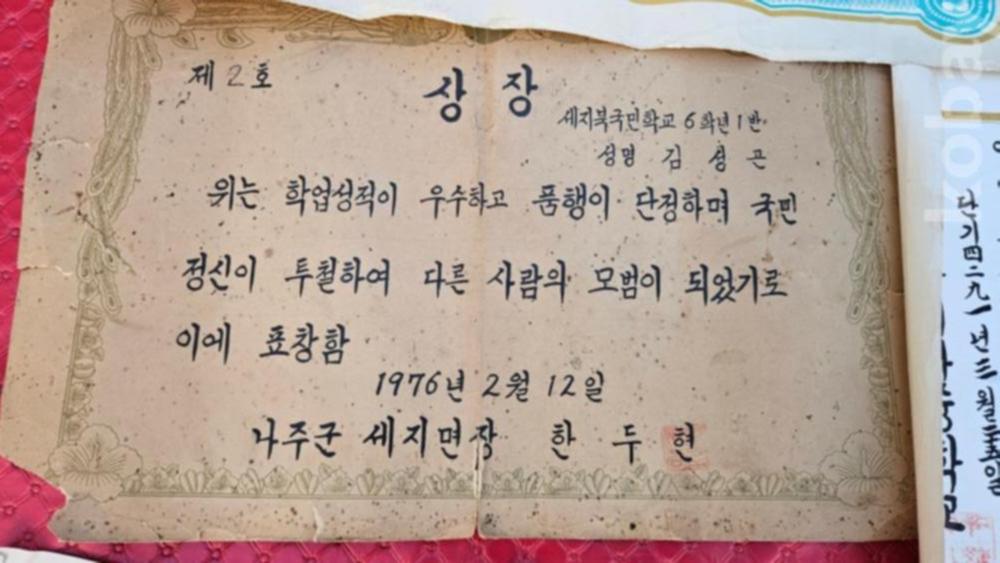 제 2 호
상 장
세지북국민학교 6학년 1반
성명 김 성 곤
위는 학업성적이 우수하고 품행이 단정하며 국민
정신이 투철하여 다른 사람의 모범이 되었기로
이에 표창함
1976년 2월 12일
나주군 세지면장 한 두 현
단기四二九一년三월